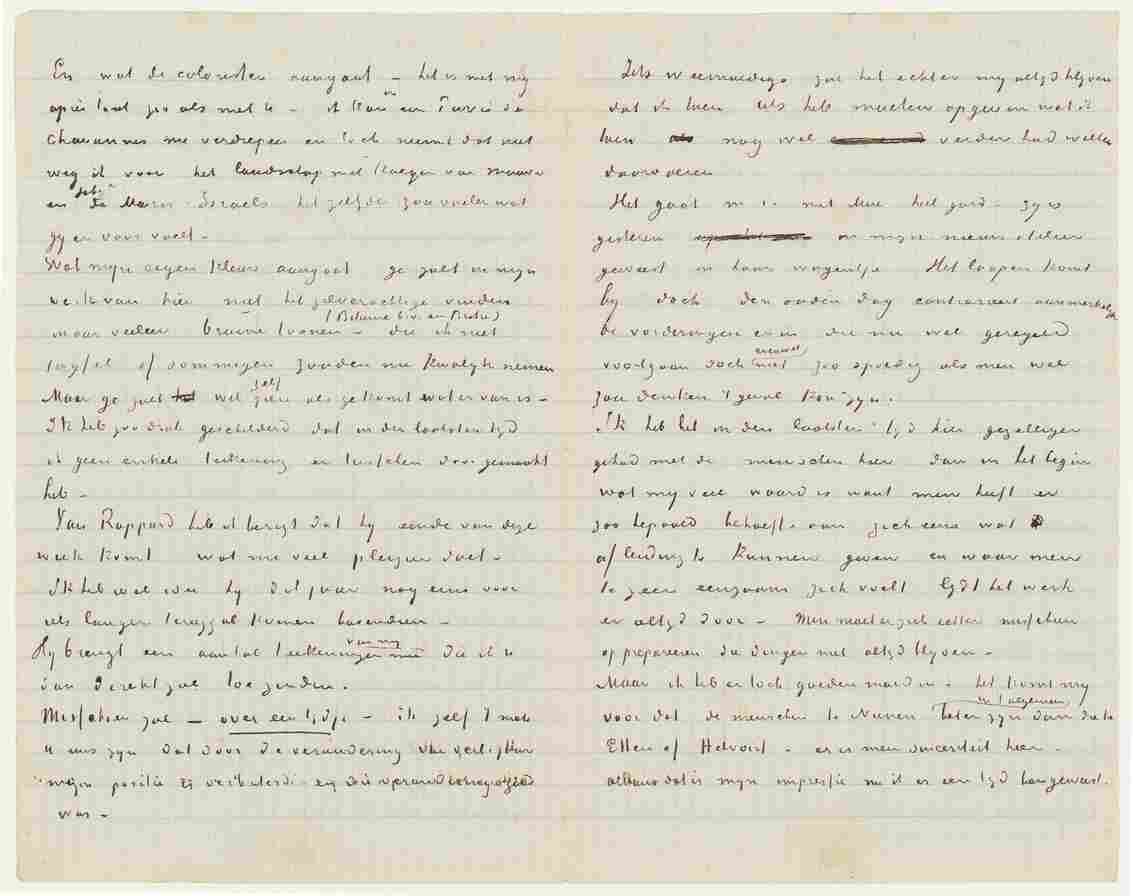 En wat de coloristen aangaat – het is met mij
a peu pres zoo als met U – ik kan in een Puvis de
Chavannes me verdiepen en toch neemt dat niet
weg ik voor het landschap met koeijen van Mauve
en de Maris Israels het zelfde zou voelen wat
gij er voor voelt –
Wat mijn eigen kleur aangaat ge zult in mijn
werk van hier niet het zilverachtige vinden
(Bitume b.v. en Bistre)
maar veeleer bruine toonen – die ik niet
twyfel of sommigen zouden me kwalijk nemen
Maar ge zult wel zelf zien als ge komt wat er van is –
Ik heb zoo druk geschilderd dat in den laatsten tijd
ik geen enkele teekening er tusschen door gemaakt
heb –
Van Rappard heb ik berigt dat hij einde van deze
week komt wat me veel pleizier doet –
Ik heb wel idee hij dit jaar nog eens voor
iets langer terug zal komen bovendien –
Hij brengt een aantal teekeningen van mij mee die ik U
dan direkt zal toezenden.
Misschien zal – over een tijdje – ik zelf 't met
U eens zijn dat door de verandering van verl. jaar
mijn positie is verbeterd en die verandering goed
was –
Iets weemoedigs zal het echter mij altijd blijven
dat ik toen iets heb moeten opgeven wat ik
toen nog wel verder had willen
doorvoeren
Het gaat m.i. met Moe heel goed – zij is
gisteren in mijn nieuw atelier
geweest in haar wagentje Het loopen komt
bij doch den ouden dag contrarieert aanmerkelijk
de vorderingen er in die nu wel geregeld
voortgaan doch evenwel niet zoo spoedig als men wel
zou denken 't geval kon zijn.
Ik heb het in den laatsten tijd hier gezelliger
gehad met de menschen hier dan in het begin
wat mij veel waard is want men heeft er
zoo bepaald behoefte aan zich eens wat
afleiding te kunnen geven en waar men
te zeer eenzaam zich voelt lijdt het werk
er altijd door – Men moet er zich echter misschien
op prepareeren die dingen niet altijd blijven –
Maar ik heb er toch goeden moed in – het komt mij
voor dat de menschen te Nunen in 't algemeen beter zijn dan die te
Etten of Helvoirt – er is meer sinceriteit hier –
althans dat is mijn impressie nu ik er een tijd ben geweest.